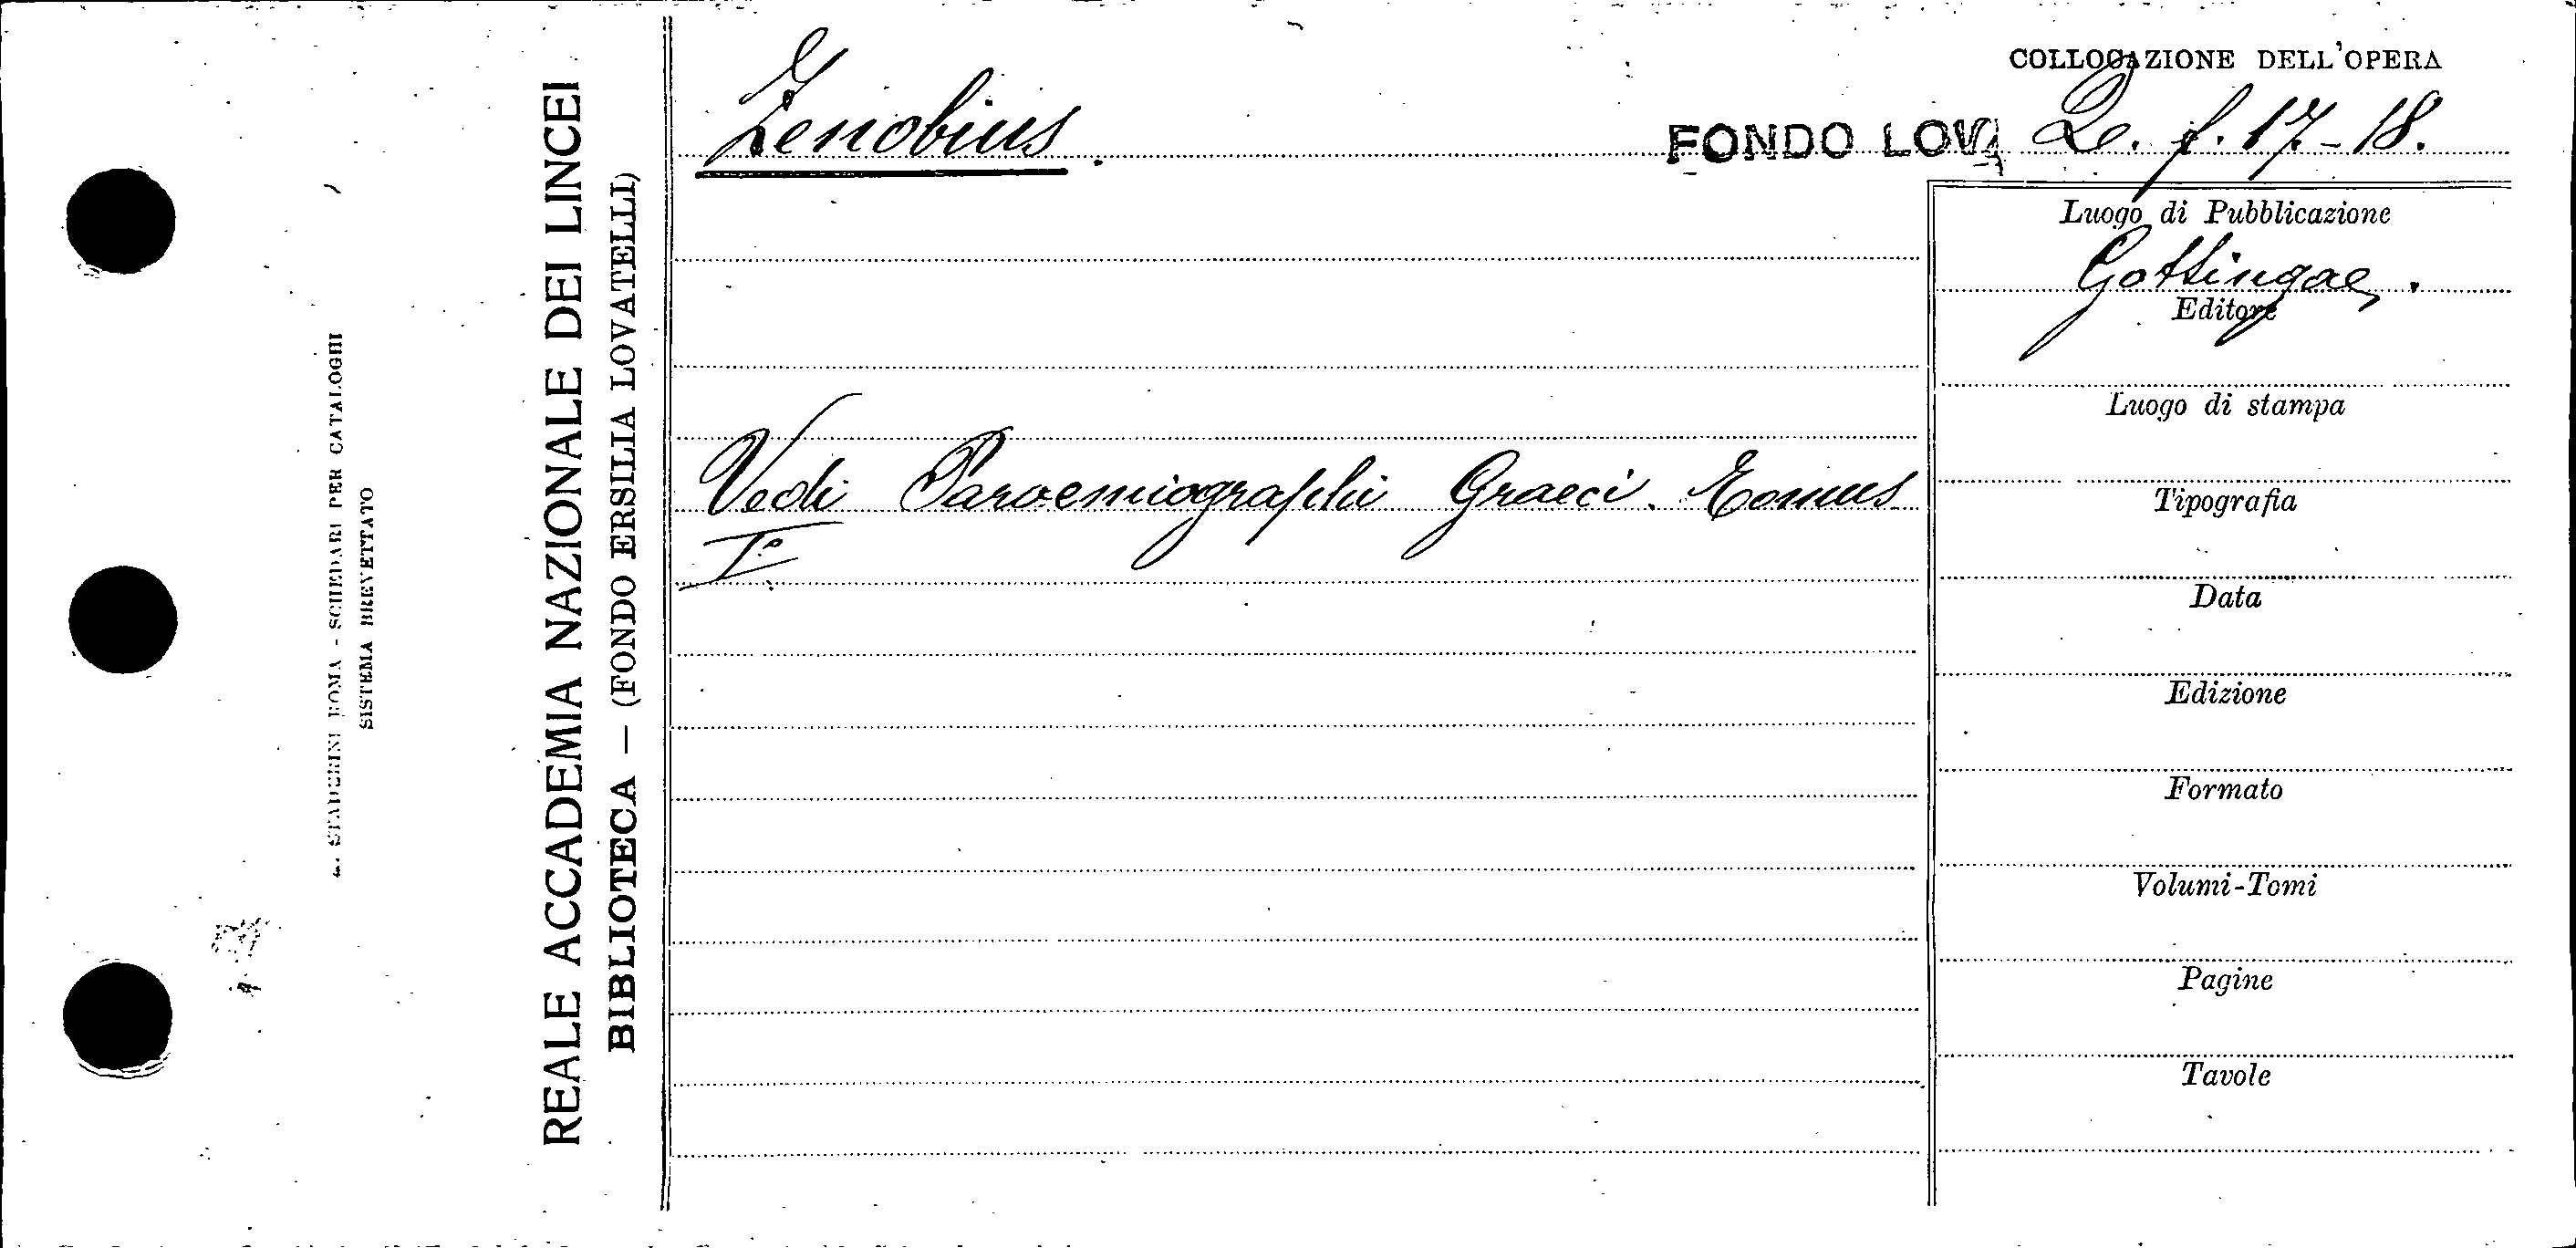 COLLOCAZIONE DELL'OPERA
Zenobius.
FONDO LOVA
2e. f. 17.-18.
Luogo di Pubblicazione
Gottingae.
Editore
Luogo di stampa
Vedi Paroemiographi Graeci. Tomus
I°
Tipografia
Data
Edizione
Formato
Volumi-Tomi
Pagine
Tavole
REALE ACCADEMIA NAZIONALE DEI LINCEI
BIBLIOTECA — (FONDO ERSILIA LOVATELLI)
STADERINI ROMA - SCHEDARI PER CATALOGHI
SISTEMA BREVETTATO